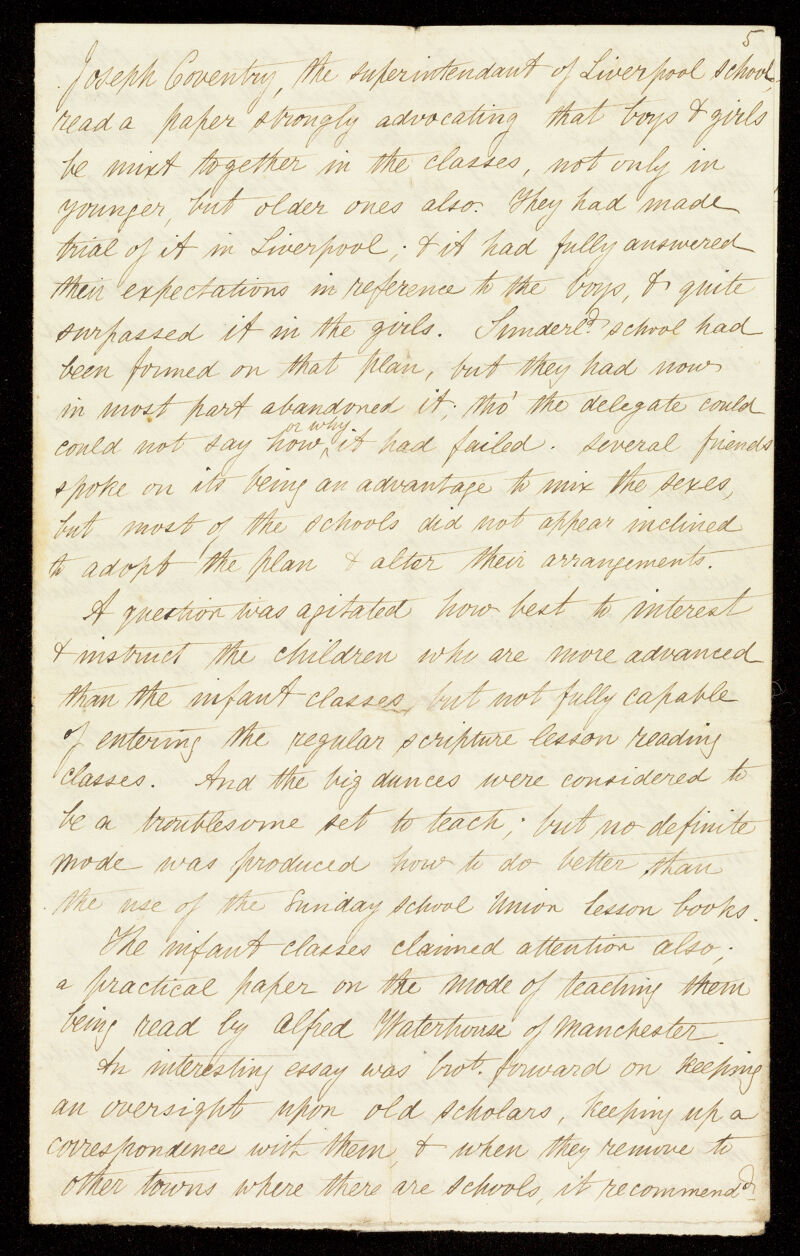 5
Joseph Coventry, the superintendant of Liverpool school,
read a paper strongly advocating that boys & girls
be mixt together in the classes, not only in
younger, but older ones also. They had made
trial of it in Liverpool; & it had fully answered
their expectations in reference to the boys, & quite
surpassed it in the girls. Sunderld. school had
been formed on that plan, but they had now
in most part abandoned it; tho' the delegate could
or why
could not say how it had failed. Several friends
spoke on its being an advantage to mix the sexes,
but most of the schools did not appear inclined
to adopt the plan & alter their arrangements.
A question was agitated how best to interest
& instruct the children who are more advanced
than the infant classes, but not fully capable
of entering the regular scripture lesson reading
classes. And the big dunces were considered to
be a troublesome set to teach; but no definite
mode was produced how to do better than
the use of the Sunday school Union lesson books.
The infant classes claimed attention also;
a practical paper on the mode of teaching them
being read by Alfred Waterhouse of Manchester.
An interesting essay was brot. forward on keeping
an oversight upon old scholars, keeping up a
correspondence with them, & when they remove to
other towns where there are schools, it recommendd